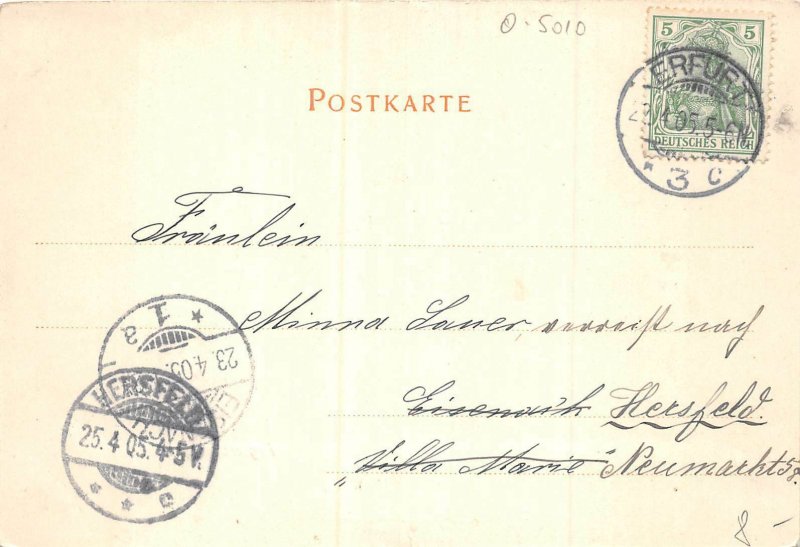 O-5010
5 5
DEUTSCHES REICH
ERFURT
23.4.05.5-6 N.
* 3 c
POSTKARTE
Fräulein
Minna Sauer, verreist nach
Eisenach Hersfeld.
"Villa Marie" Neumarkt 58.
1 a
23.4.05.
HERSFELD
25.4.05.4-5 V.
* * c
8-